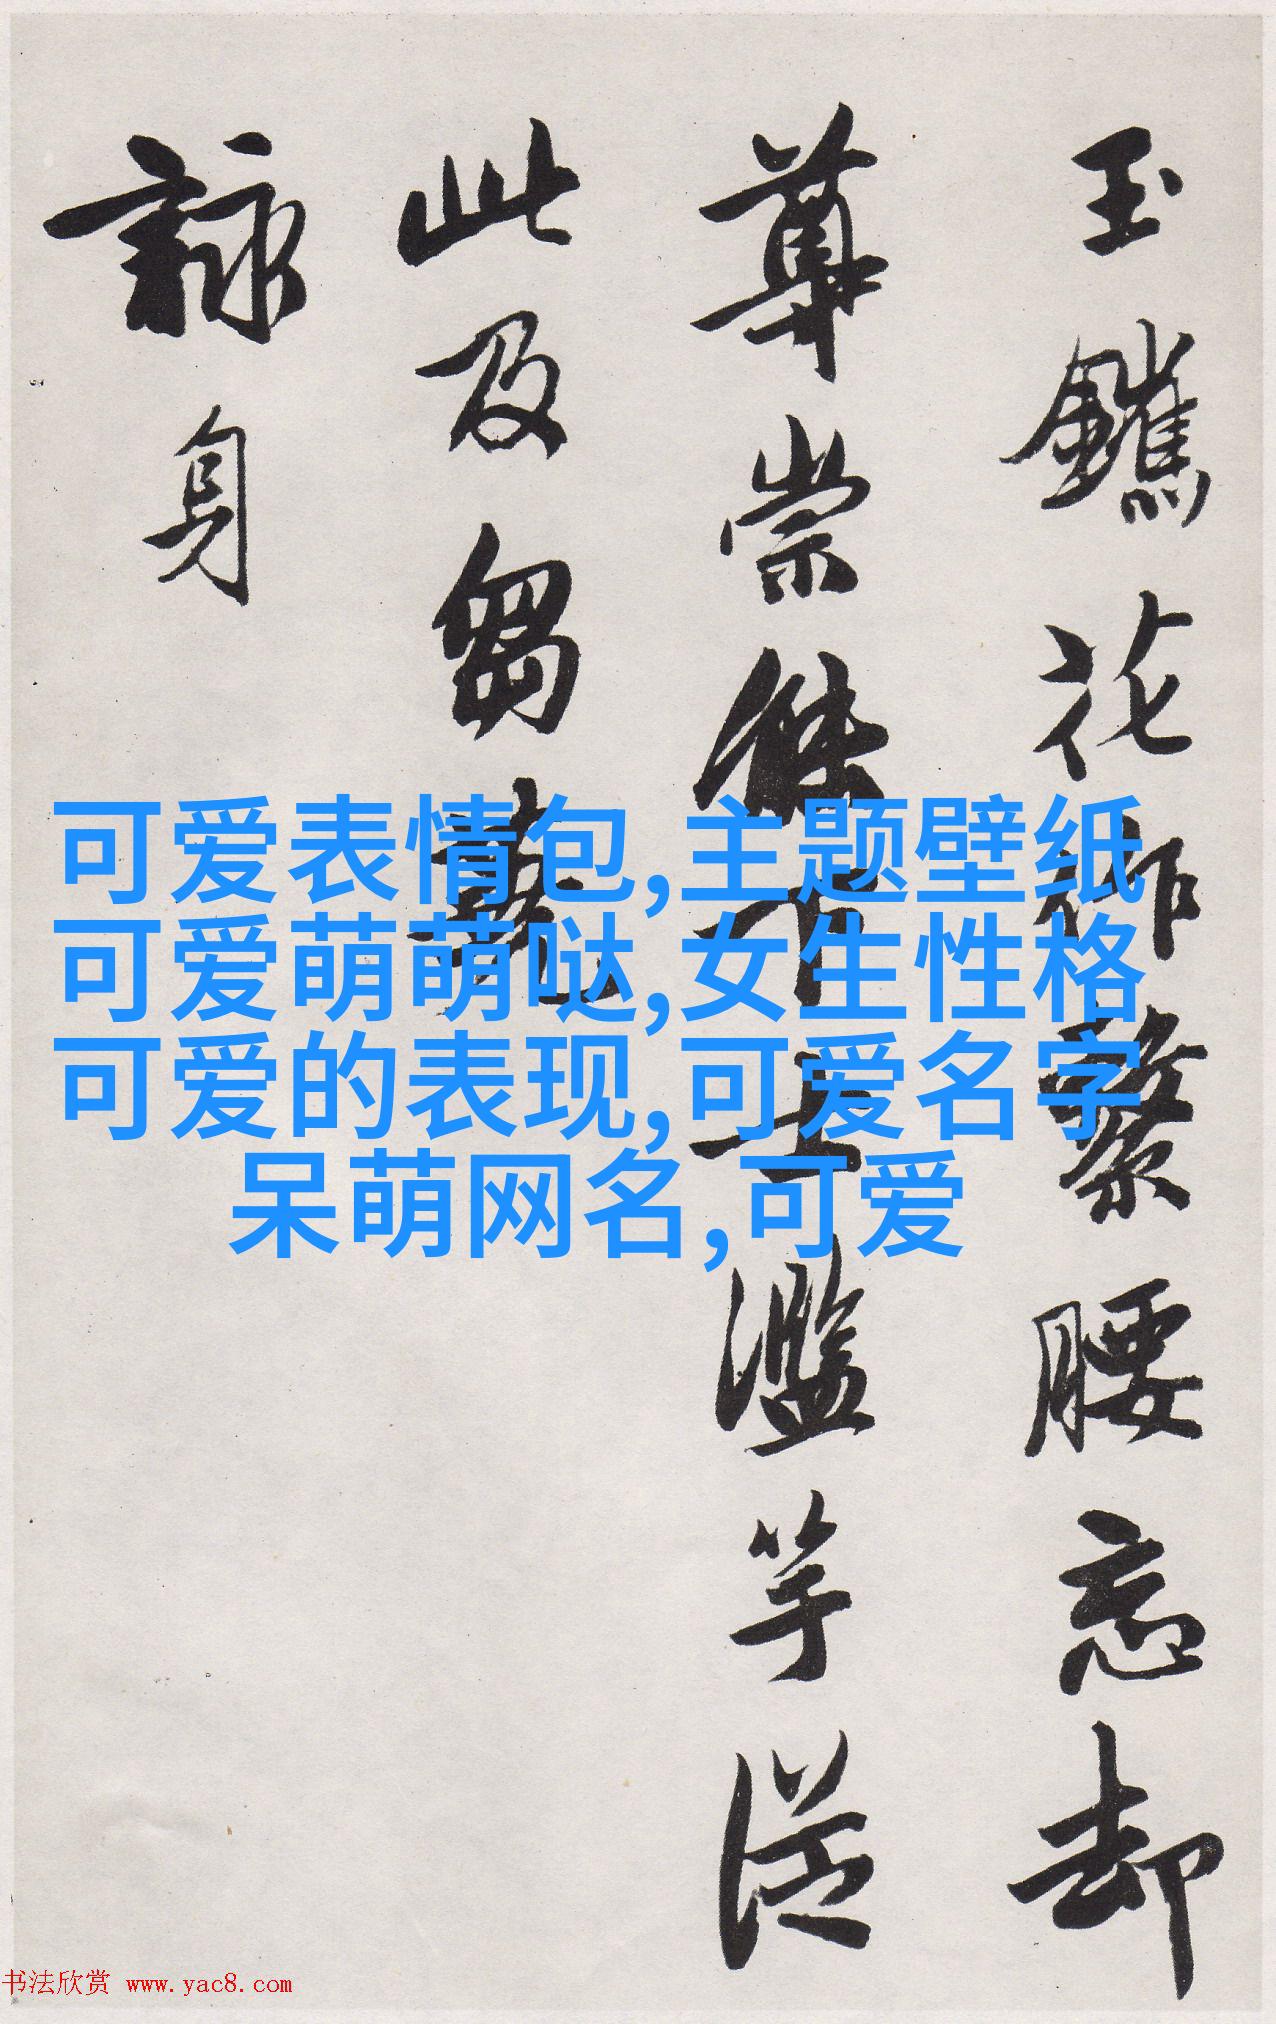 玉花繫腰忘却
崇下士濫竽從
此及芻蕘
身
可爱表情包,主题壁纸
可爱萌萌哒,女生性格
可爱的表现,可爱名字
呆萌网名,可爱
书法欣赏 www.yac8.com